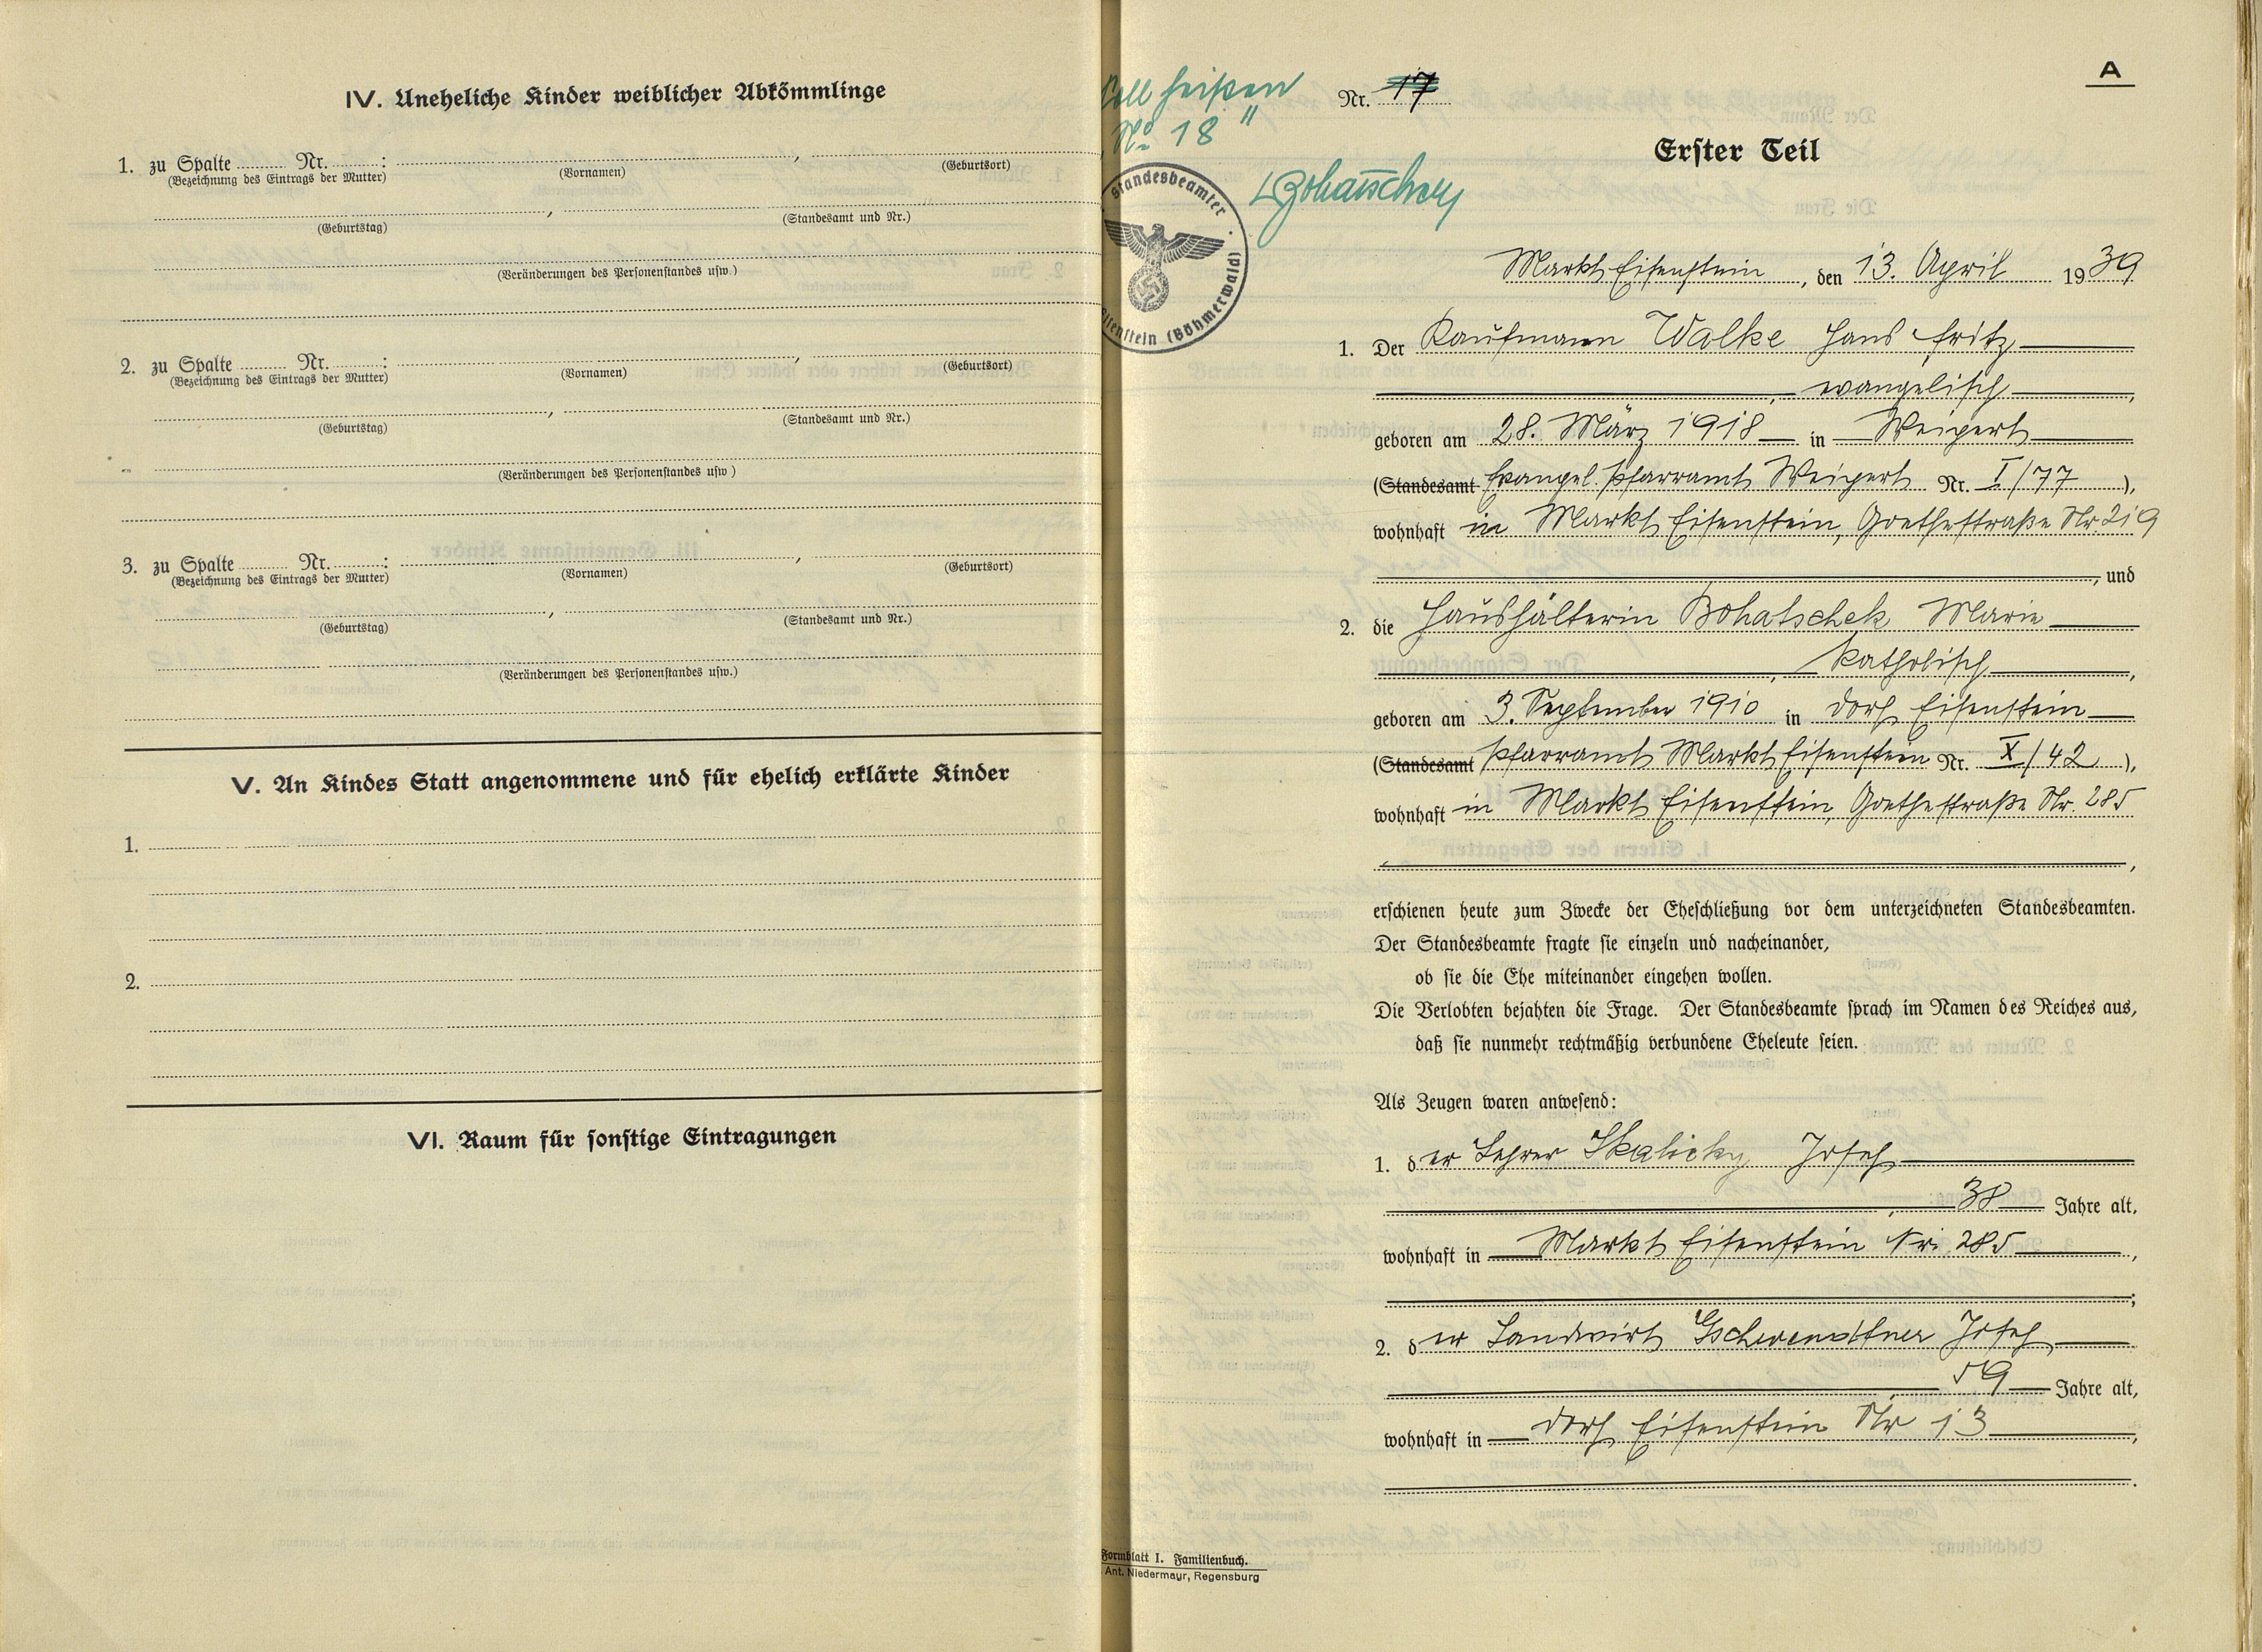 IV. Uneheliche Kinder weiblicher Abkömmlinge
1. zu Spalte ........ Nr. ........:
(Bezeichnung des Eintrags der Mutter) (Vornamen) (Geburtsort)
(Geburtstag) (Standesamt und Nr.)
(Veränderungen des Personenstandes usw.)
2. zu Spalte ........ Nr. ........:
(Bezeichnung des Eintrags der Mutter) (Vornamen) (Geburtsort)
(Geburtstag) (Standesamt und Nr.)
(Veränderungen des Personenstandes usw.)
3. zu Spalte ........ Nr. ........:
(Bezeichnung des Eintrags der Mutter) (Vornamen) (Geburtsort)
(Geburtstag) (Standesamt und Nr.)
(Veränderungen des Personenstandes usw.)
V. An Kindes Statt angenommene und für ehelich erklärte Kinder
1.
2.
VI. Raum für sonstige Eintragungen
A
Soll heißen
No 18"
Nr. 17
Standesbeamter
Eisenstein (Böhmerwald)
Erster Teil
Markt Eisenstein, den 13. April 1939
1. Der Kaufmann Walke Hans Fritz
, evangelisch,
geboren am 28. März 1918 in Weipert
(Standesamt Evangel. Pfarramt Weipert Nr. I/77),
wohnhaft in Markt Eisenstein, Goethestraße Nr. 219
, und
2. die Haushälterin Bohatschek Marie
, katholisch,
geboren am 3. September 1910 in Dorf Eisenstein
(Standesamt Pfarramt Markt Eisenstein Nr. X/42),
wohnhaft in Markt Eisenstein, Goethestraße Nr. 285
,
erschienen heute zum Zwecke der Eheschließung vor dem unterzeichneten Standesbeamten.
Der Standesbeamte fragte sie einzeln und nacheinander,
ob sie die Ehe miteinander eingehen wollen.
Die Verlobten bejahten die Frage. Der Standesbeamte sprach im Namen des Reiches aus,
daß sie nunmehr rechtmäßig verbundene Eheleute seien.
Als Zeugen waren anwesend:
1. der Lehrer Skalicky Josef
, 38 Jahre alt,
wohnhaft in Markt Eisenstein Nr. 285,
;
2. der Landwirt Gschwendtner Josef
, 59 Jahre alt,
wohnhaft in Dorf Eisenstein Nr 13,
.
Formblatt I. Familienbuch.
Ant. Niedermayr, Regensburg